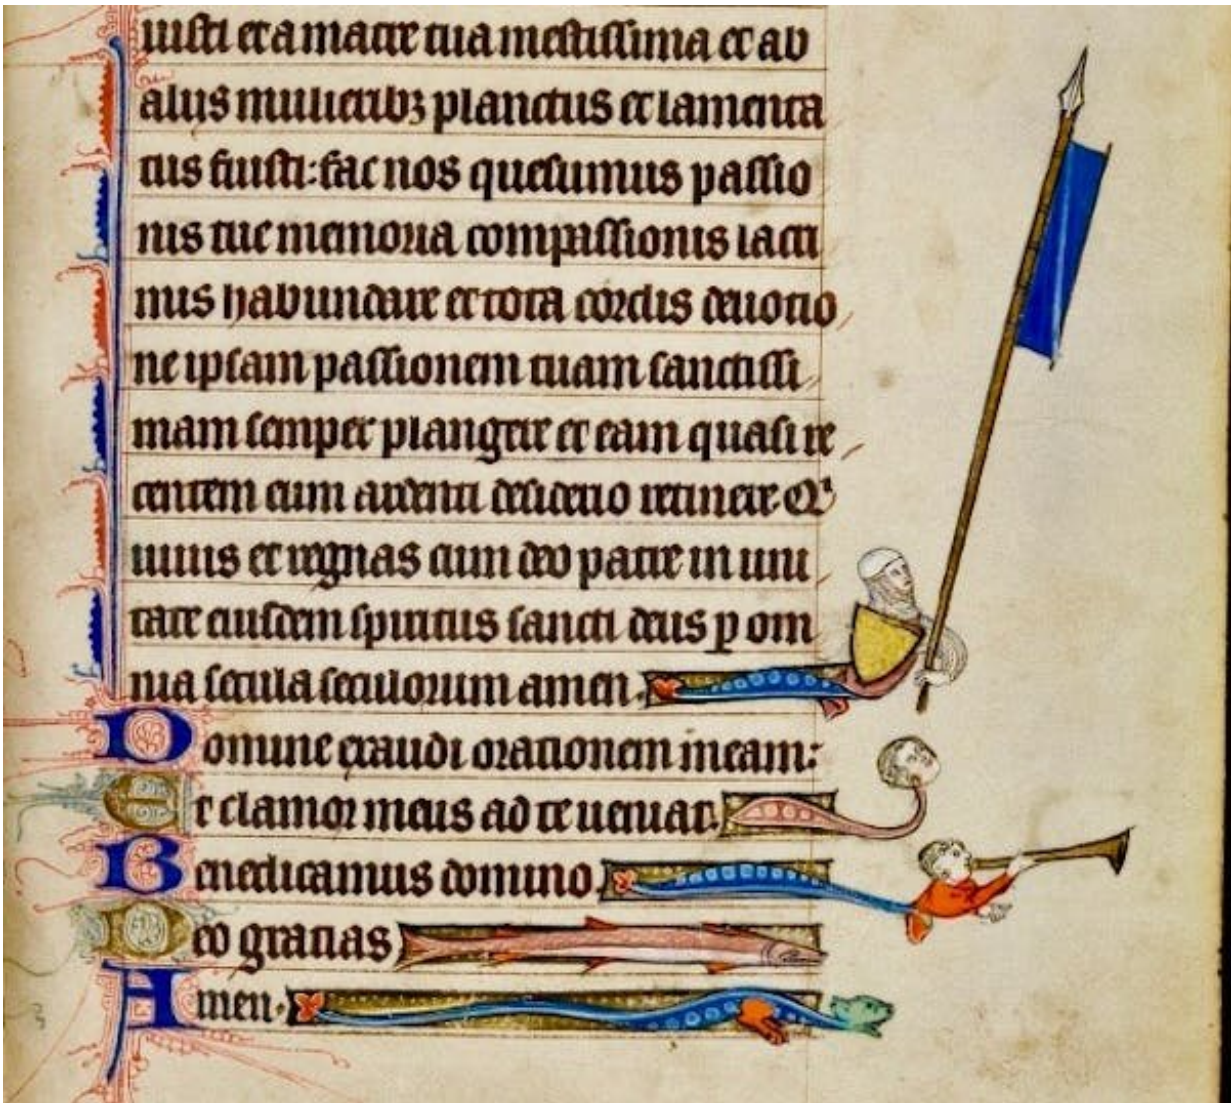 uisti et a matre tua mestissima et ab
aliis mulieribꝫ planctus et lamenta
tus fuisti: fac nos quesumus passio
nis tue memoria compassionis lacri
mis habundare et tota cordis deuotio
ne ipsam passionem tuam sanctissi
mam semper plangere et eam quasi re
centem cum ardenti desiderio retinere. Q'
uiuis et regnas cum deo patre in uni
tate eiusdem spiritus sancti deus ꝑ om
nia secula seculorum amen.
Domine exaudi orationem meam:
Et clamor meus ad te ueniat.
Benedicamus domino.
Deo gratias
Amen.